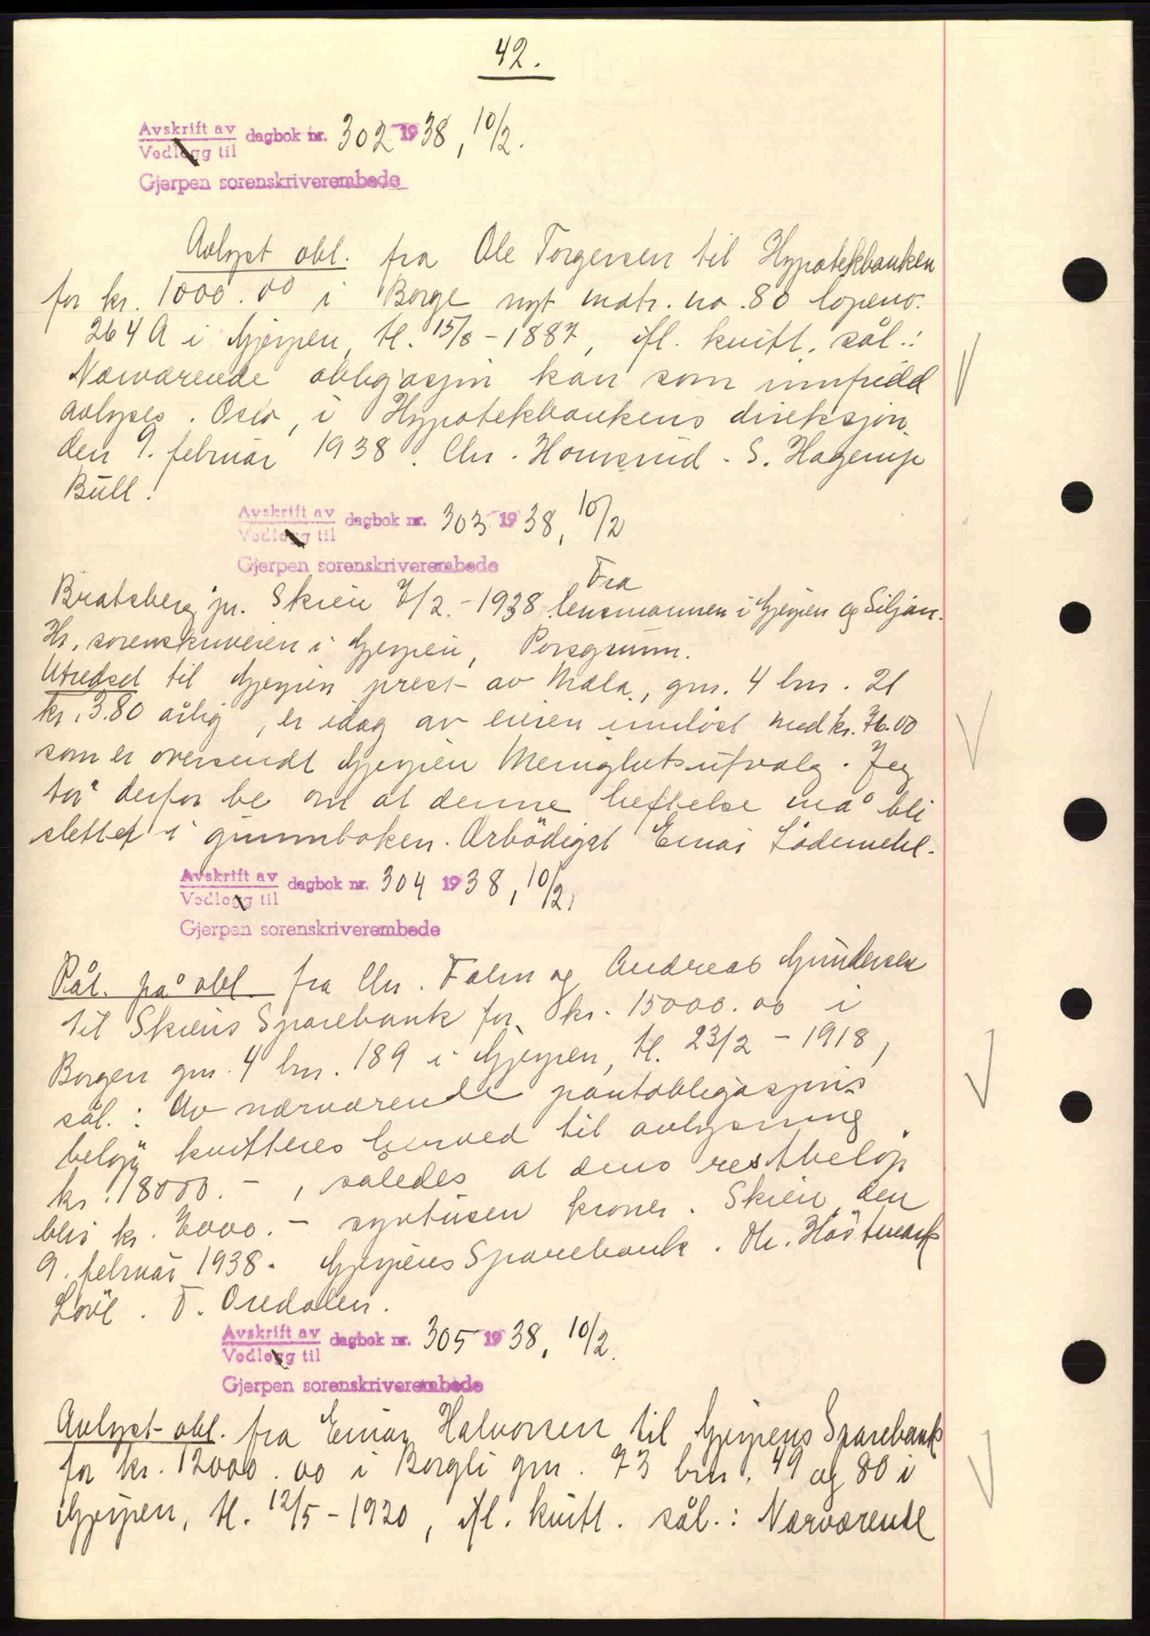 42.
Avskrift av
Vedlegg til dagbok nr. 302 1938, 10/2.
Gjerpen sorenskriverembede
Avlyst obl. fra Ole Torgersen til Hypotekbanken
for kr. 1000.00 i Borge nyt matr. no. 80 löpeno.
264 A i Gjerpen, tl. 15/8-1887, ifl. kvitt. sål.:
Nærværende obligasjon kan som innfridd
avlyses. Oslo, i Hypotekbankens direksjon,
den 9. februar 1938. Chr. Homsrud. S. Hagerup
Bull.
Avskrift av
Vedlegg til dagbok nr. 303 1938, 10/2
Gjerpen sorenskriverembede
Fra
Bratsberg pr. Skien 7/2-1938 lensmannen i Gjerpen og Siljan.
Hr. sorenskriveren i Gjerpen, Porsgrunn.
Utredsel til Gjerpen prest av Mæla, gnr. 4 bnr. 21
kr. 3.80 årlig, er idag av eieren innlöst med kr. 76.00
som er oversendt Gjerpen Menighetsutvalg. Jeg
tör derfor be om at denne heftelse må bli
slettet i grunnboken. Ærbödigst Einar
Avskrift av
Vedlegg til dagbok nr. 304 1938, 10/2.
Gjerpen sorenskriverembede
Påt. på obl. fra Chr. Falm og Andreas Gundersen
til Skiens Sparebank for kr. 15000.00 i
Borgen gnr. 4 bnr. 189 i Gjerpen, tl. 23/2-1918,
sål.: Av nærværende pantobligasjons
belöp kvitteres herved til avlysning
kr. 18000.-, således at dens restbelöp
blir kr. 7000.- syvtusen kroner. Skien, den
9. februar 1938. Gjerpens Sparebank.
F. Oredalen.
Avskrift av
Vedlegg til dagbok nr. 305 1938, 10/2.
Gjerpen sorenskriverembede
Avlyst obl. fra Einar Halvorsen til Gjerpens Sparebank
for kr. 12000.00 i Borgli gnr. 73 bnr. 49 og 80 i
Gjerpen, tl. 12/5-1920, ifl. kvitt. sål.: Nærværende